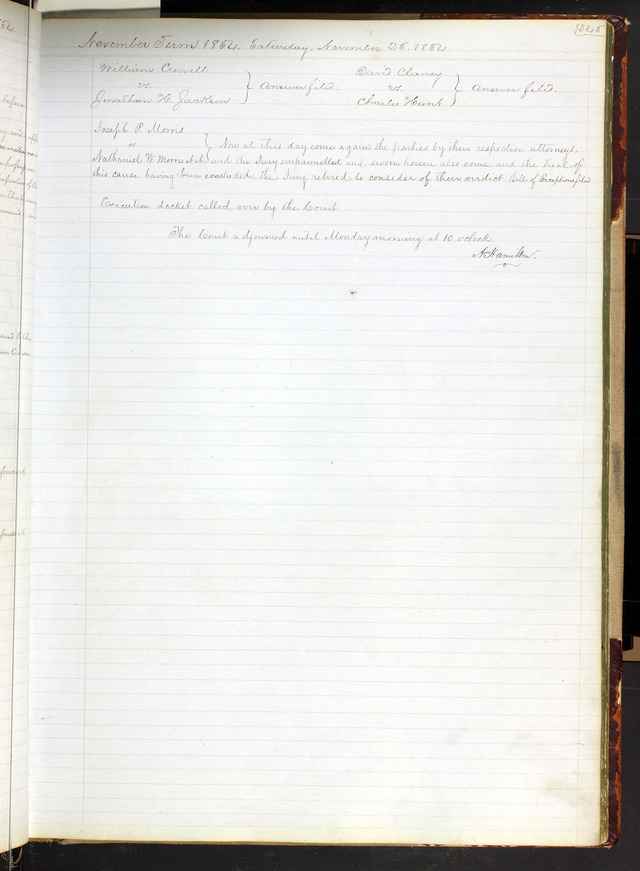 245
November Term 1854. Saturday, November 25. 1854
William Crowell
vs.
Jonathan H. Jackson
} Answer filed.
David Clancy
vs.
Charles Hunt
} Answer filed.
Joseph P. Morris
vs
Nathaniel W. Morris et al.
} Now at this day come again the parties by their respective attorneys,
and the Jury empannelled and sworn herein also come, and the trial of
this cause having been concluded the Jury retired to consider of their verdict. Bill of Exceptions filed
Execution docket called over by the Court.
The Court adjourned until Monday morning at 10 o'clock.
A Hamilton.